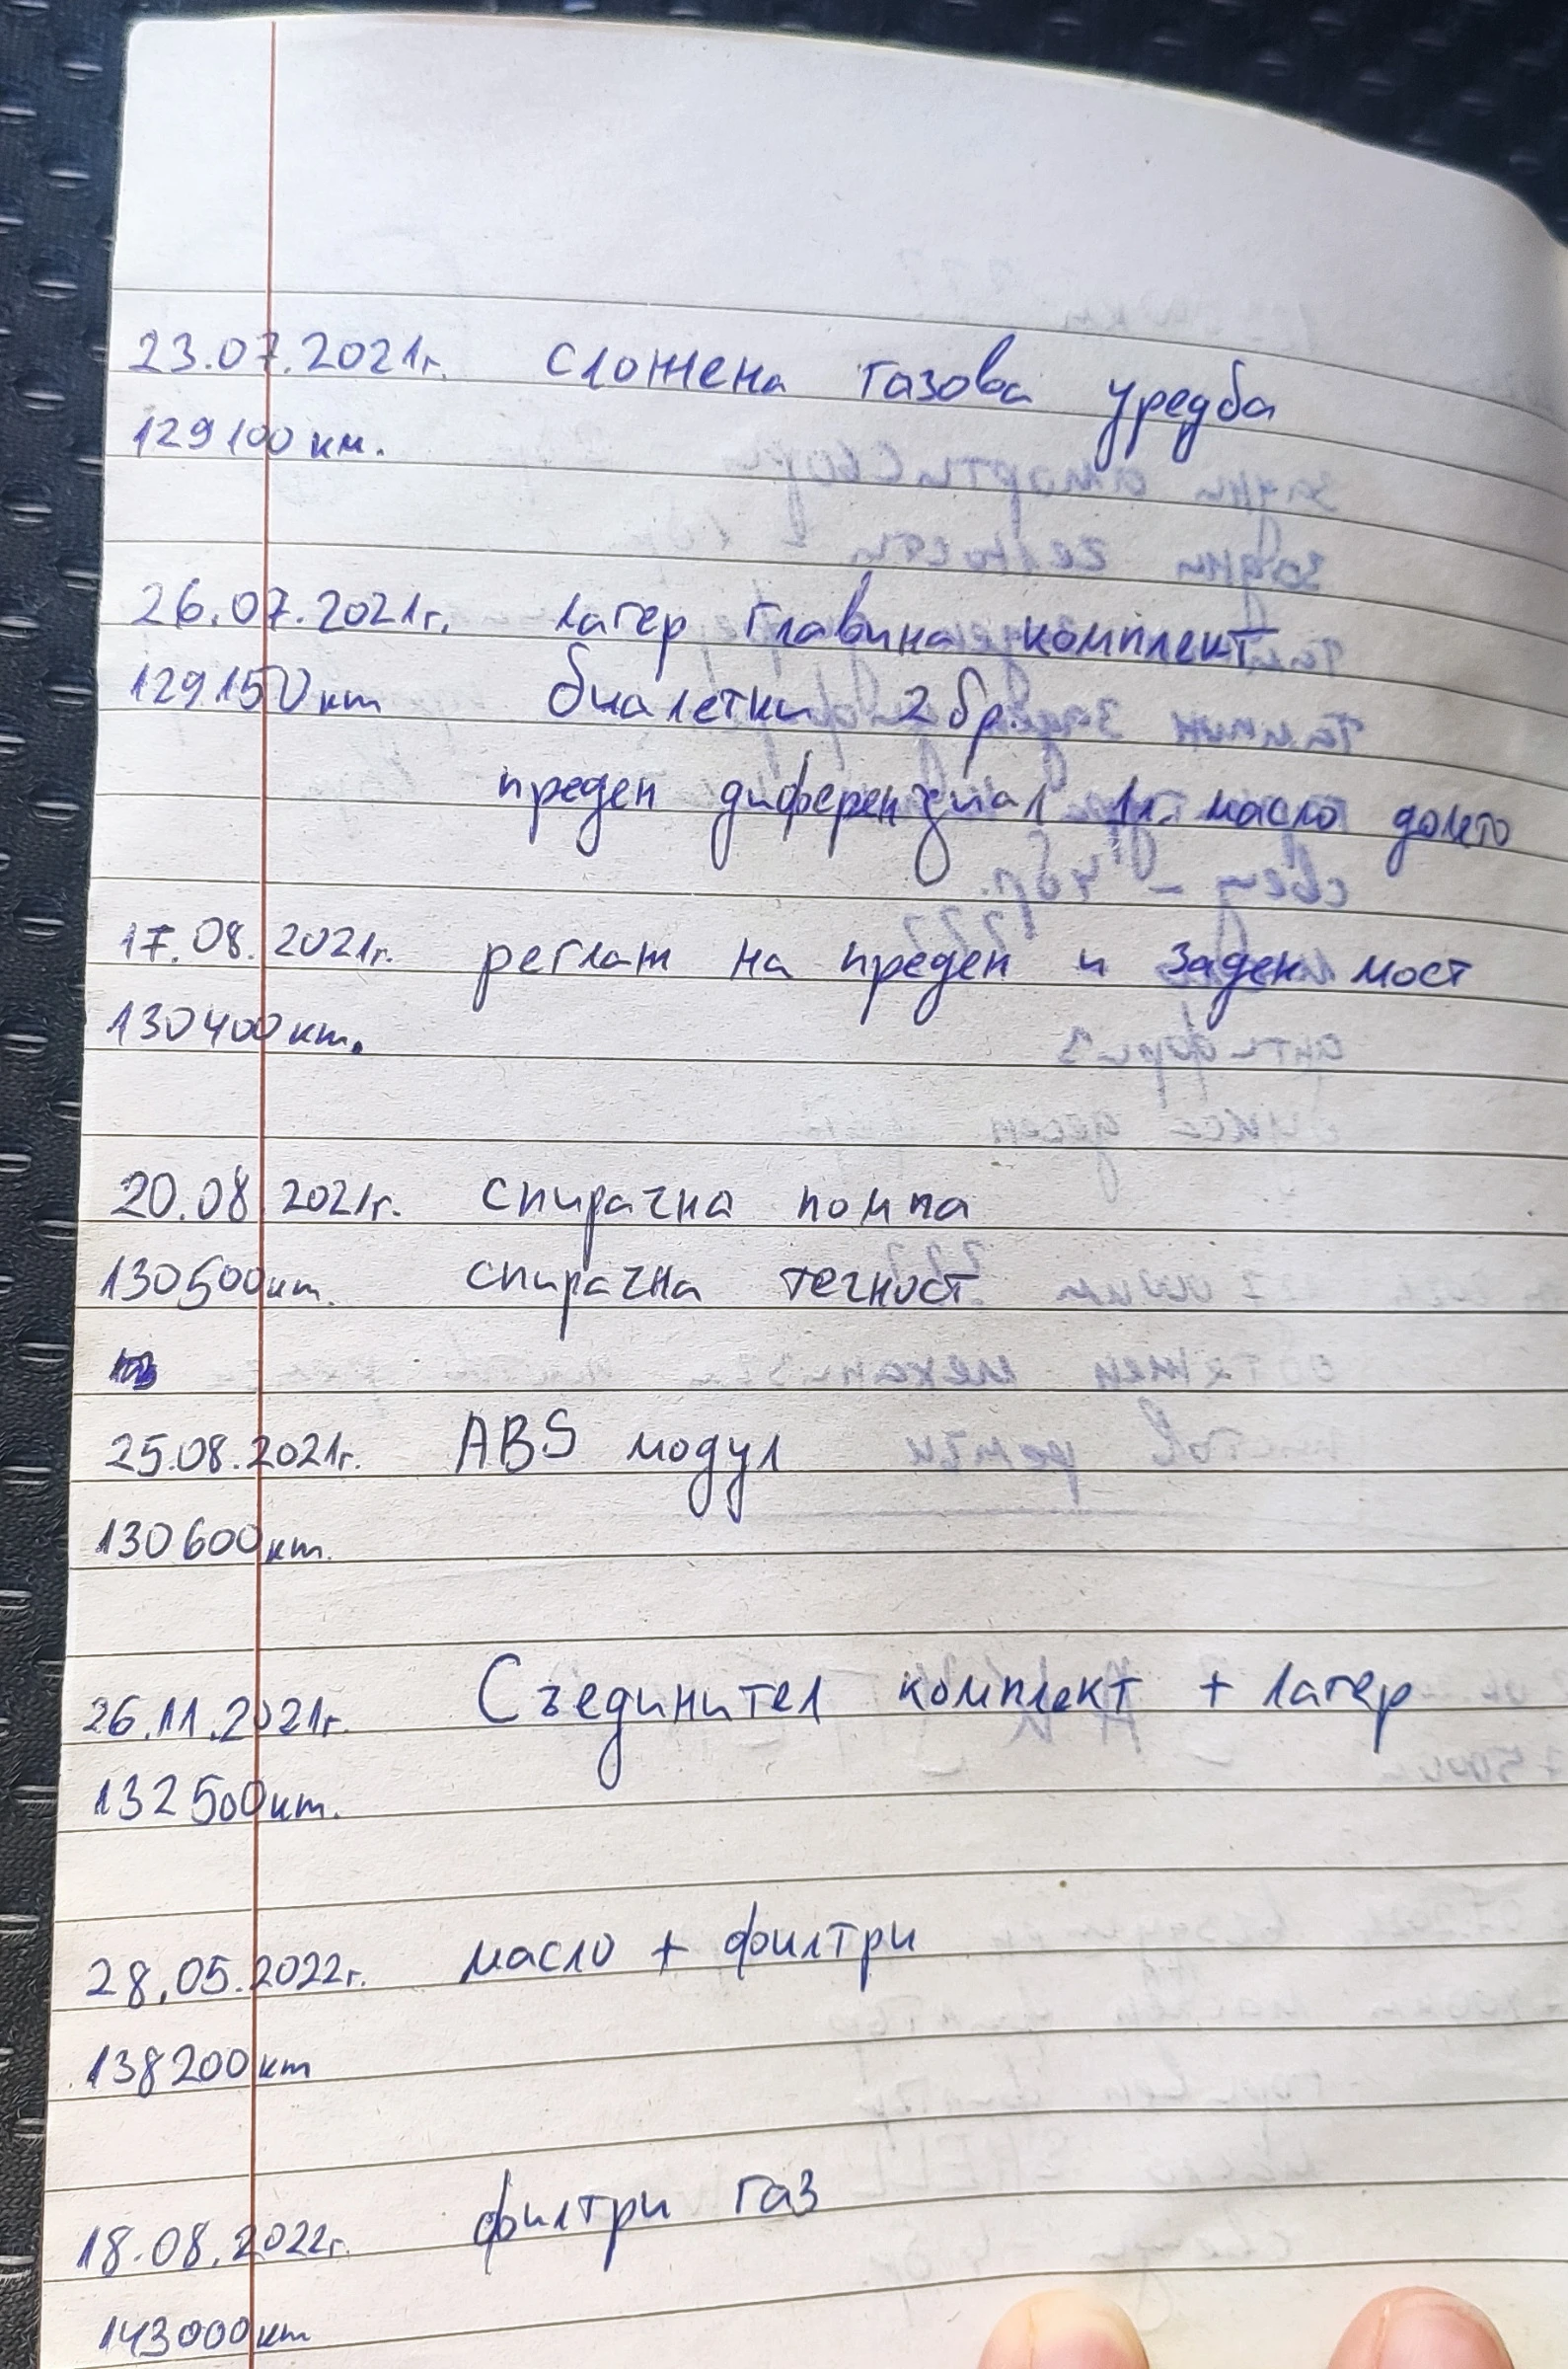 23.07.2021г. сложена газова уредба
129100 км.
26.07.2021г. лагер главина комплект
129150 км биалетки 2 бр.
преден диференциал 1л. масло долято
17.08.2021г. реглаж на преден и заден мост
130400 км.
20.08.2021г. спирачна помпа
130500 км. спирачна течност
25.08.2021г. ABS модул
130600 км.
26.11.2021г. Съединител комплект + лагер
132500 км.
28.05.2022г. масло + филтри
138200 км
18.08.2022г. филтри газ
143000 км